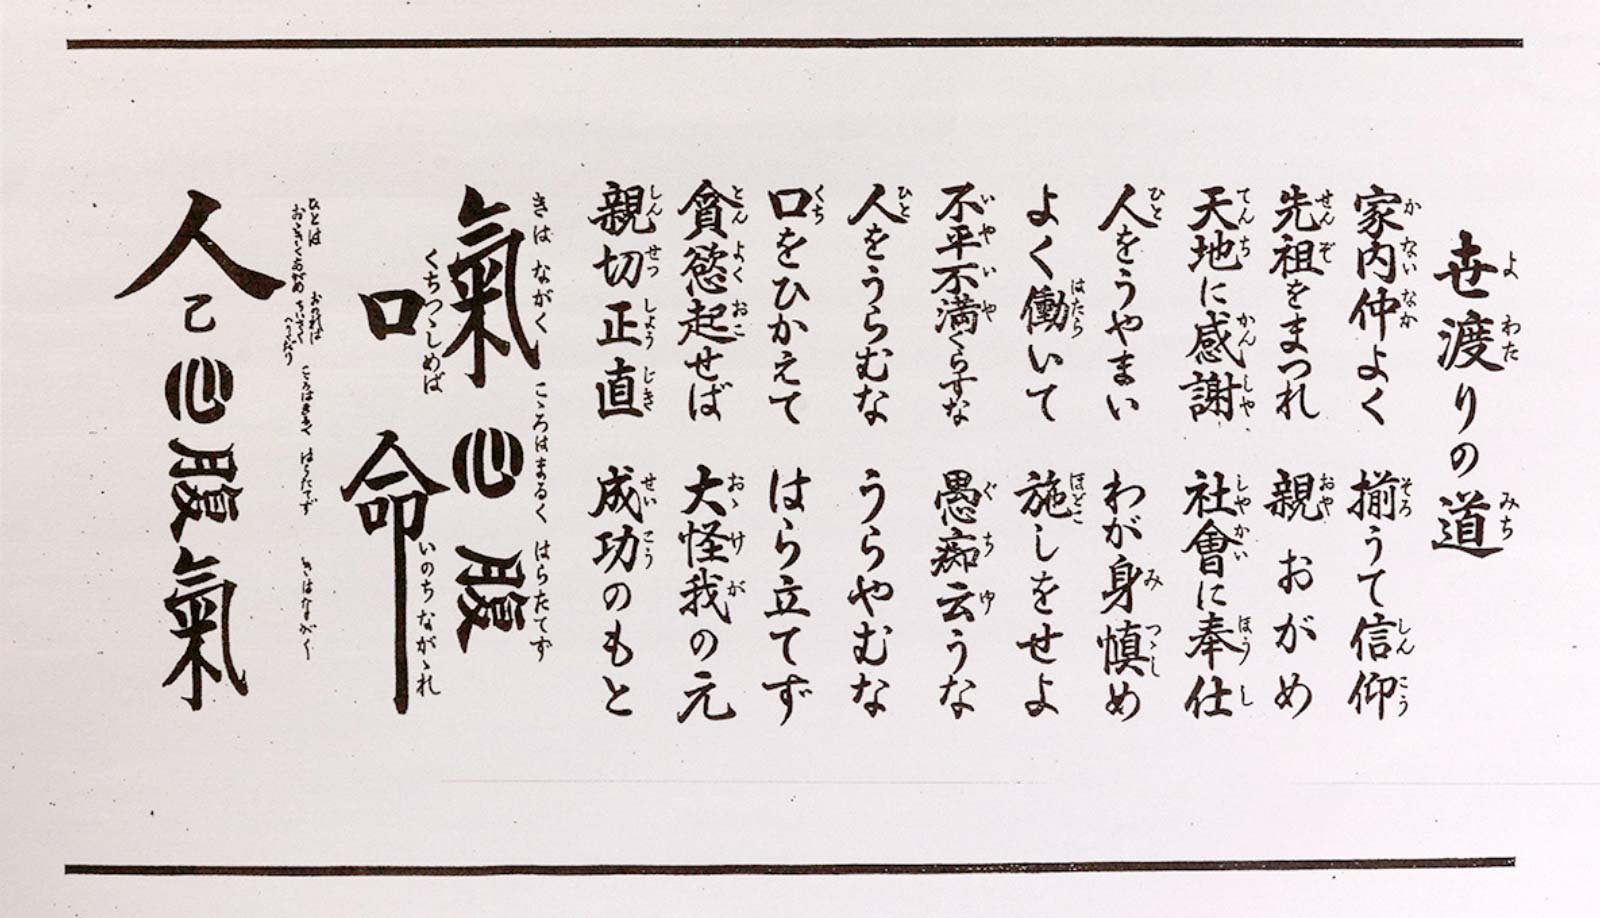 世渡りの道
家内仲よく 揃うて信仰
先祖をまつれ 親おがめ
天地に感謝 社會に奉仕
人をうやまい わが身慎め
よく働いて 施しをせよ
不平不満くらすな 愚痴云うな
人をうらむな うらやむな
口をひかえて はら立てず
貪慾起せば 大怪我の元
親切正直 成功のもと
きは ながく こゝろはまるく はらたてず
氣 心 腹
くちつゝしめば いのちながゝれ
口 命
ひとは おゝきくあがめ おのれは ちいさく へりくだり こゝろはまるく はらたてず きはながく
人 己 心 腹 氣